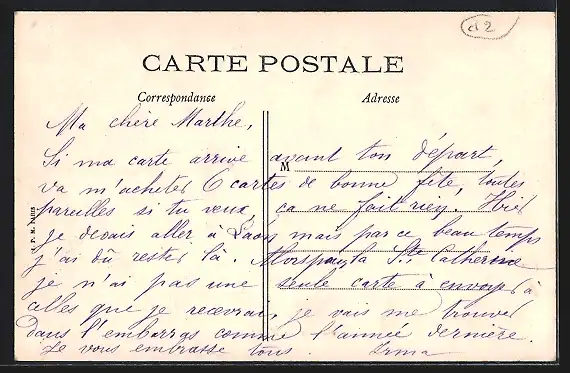 d 2
CARTE POSTALE
Correspondance Adresse
M
Ma chère Marthe,
Si ma carte arrive avant ton départ,
va m'acheter 6 cartes de bonne fête, toutes
pareilles si tu veux, ça ne fait rien. Hier
je devais aller à Laon mais par ce beau temps
j'ai dû rester là. Alors pour la Ste Catherine
je n'ai pas une seule carte à envoyer à
celles que je recevrai, je vais me trouver
dans l'embarras comme l'année dernière.
Je vous embrasse tous. Irma